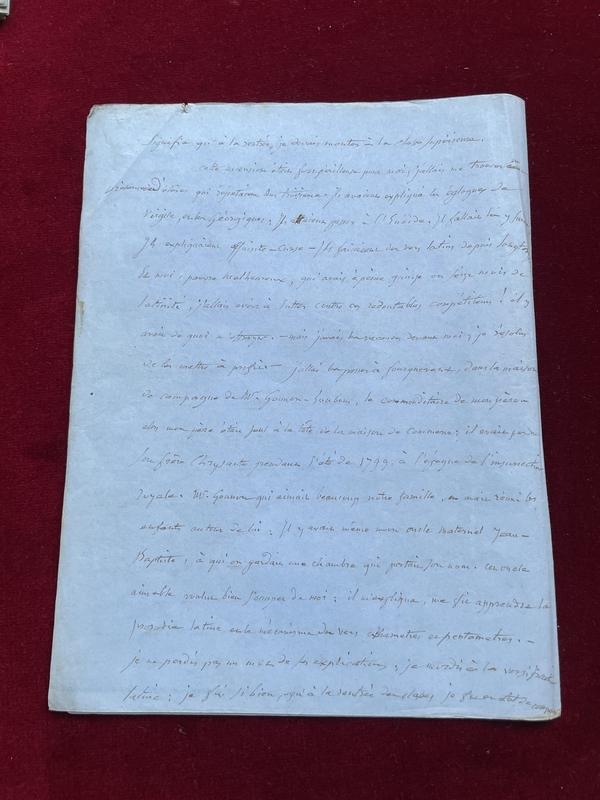 signifia qu'à la rentrée, je devais monter à la classe supérieure.
cette ascension était fort périlleuse pour moi; j'allais me trouver
d'élèves qui répétaient leur troisième: ils avaient expliqué les églogues de
Virgile, et les Géorgiques; ils étaient passés à l'Enéide. Il fallait les y
Ils expliquaient Quinte-Curce - Ils faisaient des vers latins depuis longtems
Et moi, pauvre malheureux, qui avais à peine quinze ou seize mois de
latinité, j'allais avoir à lutter contre ces redoutables compétiteurs! il y
avait de quoi - mais j'avais les vacances devant moi; je résolus
de les mettre à profit - j'allai les passer à Fourquevaux, dans la maison
de campagne de Mr Gounon-Loubens, le commanditaire de mon père -
alors mon père était seul à la tête de la maison de commerce; il avait perdu
son frère Chrysante pendant l'été de 1799, à l'époque de l'insurrection
royale. Mr Gounon qui aimait beaucoup notre famille, en avait réuni les
enfants autour de lui; Il y avait même mon oncle maternel Jean-
Baptiste, à qui on gardait une chambre qui portait son nom. cet oncle
aimable voulut bien s'occuper de moi: il m'expliqua, me fit apprendre la
prosodie latine et le mécanisme des vers hexamètres et pentamètres. -
je ne perdis pas un mot de ses explications; je mordis à la versification
latine; je fis si bien, qu'à la rentrée des classes je fus en état de